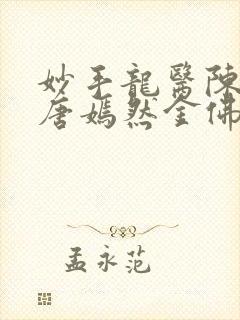 妙手龍醫陳
唐嫣然全佛
孟永范